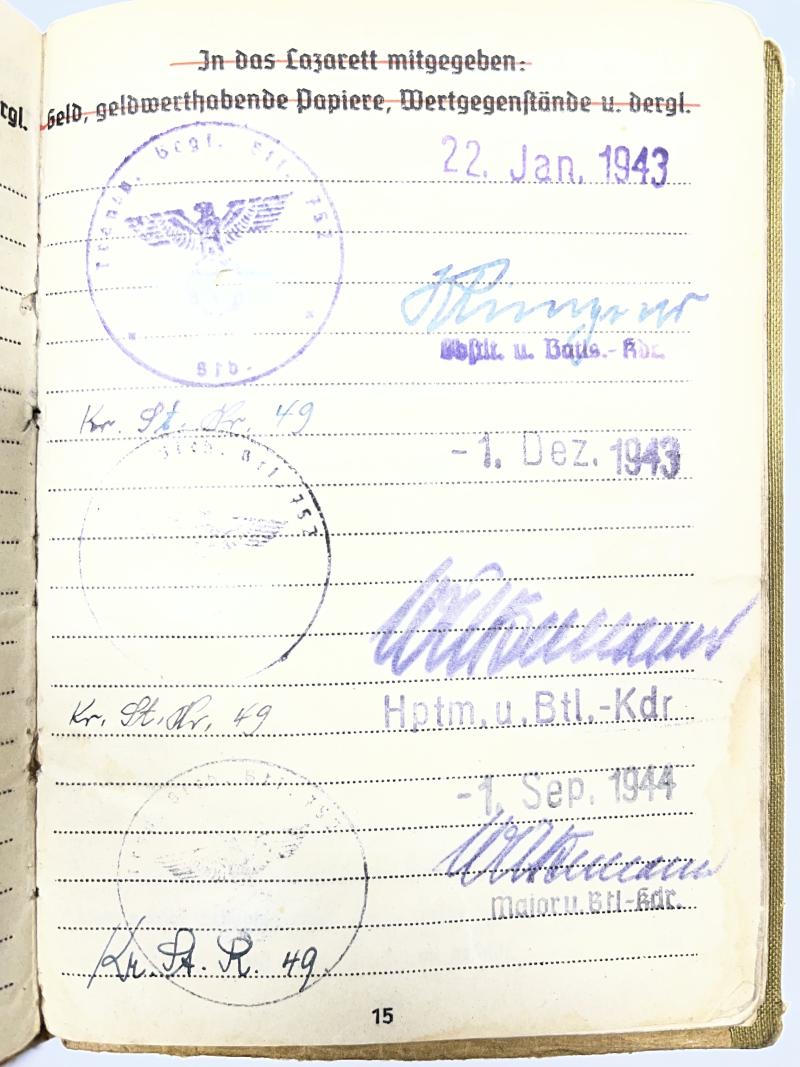 rgl.
In das Lazarett mitgegeben:
Geld, geldwerthabende Papiere, Wertgegenstände u. dergl.
Btl. 752
Stb.
22. Jan. 1943
Obstlt. u. Batls.-Kdr.
Kr. St. Nr. 49
Btl. 752
-1. Dez. 1943
Hptm. u. Btl.-Kdr
Kr. St. Nr. 49
-1. Sep. 1944
Major u. Btl-Kdr.
Kr. St. R. 49
15